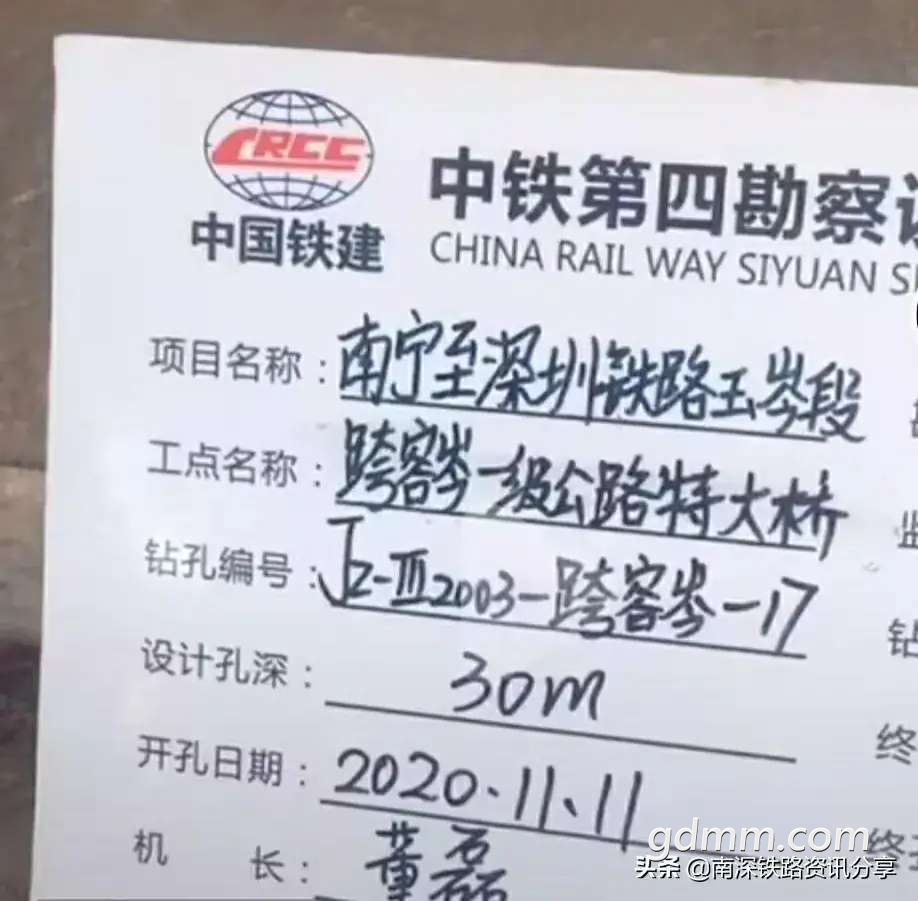 CRCC
中国铁建
中铁第四勘察设
CHINA RAIL WAY SIYUAN SU
项目名称：南宁至深圳铁路玉岑段
工点名称：跨容岑一级公路特大桥
监
钻孔编号：Jz-Ⅲ2003-跨容岑-17
钻
设计孔深：30m
终
开孔日期：2020.11.11
终
机 长：董磊
gdmm.com
头条 @南深铁路资讯分享